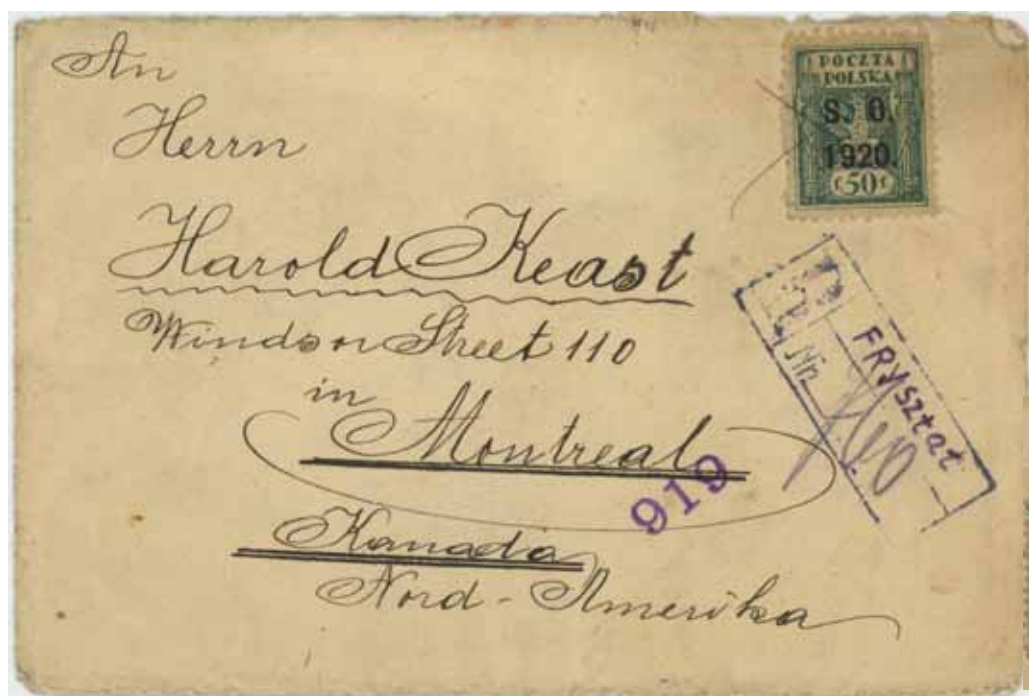 An
Herrn
Harold Keast
Windsor Street 110
in
Montreal
Kanada
Nord-Amerika
POCZTA
POLSKA
S. O.
1920.
50 f
R
FRYSZtat
Nr.
919